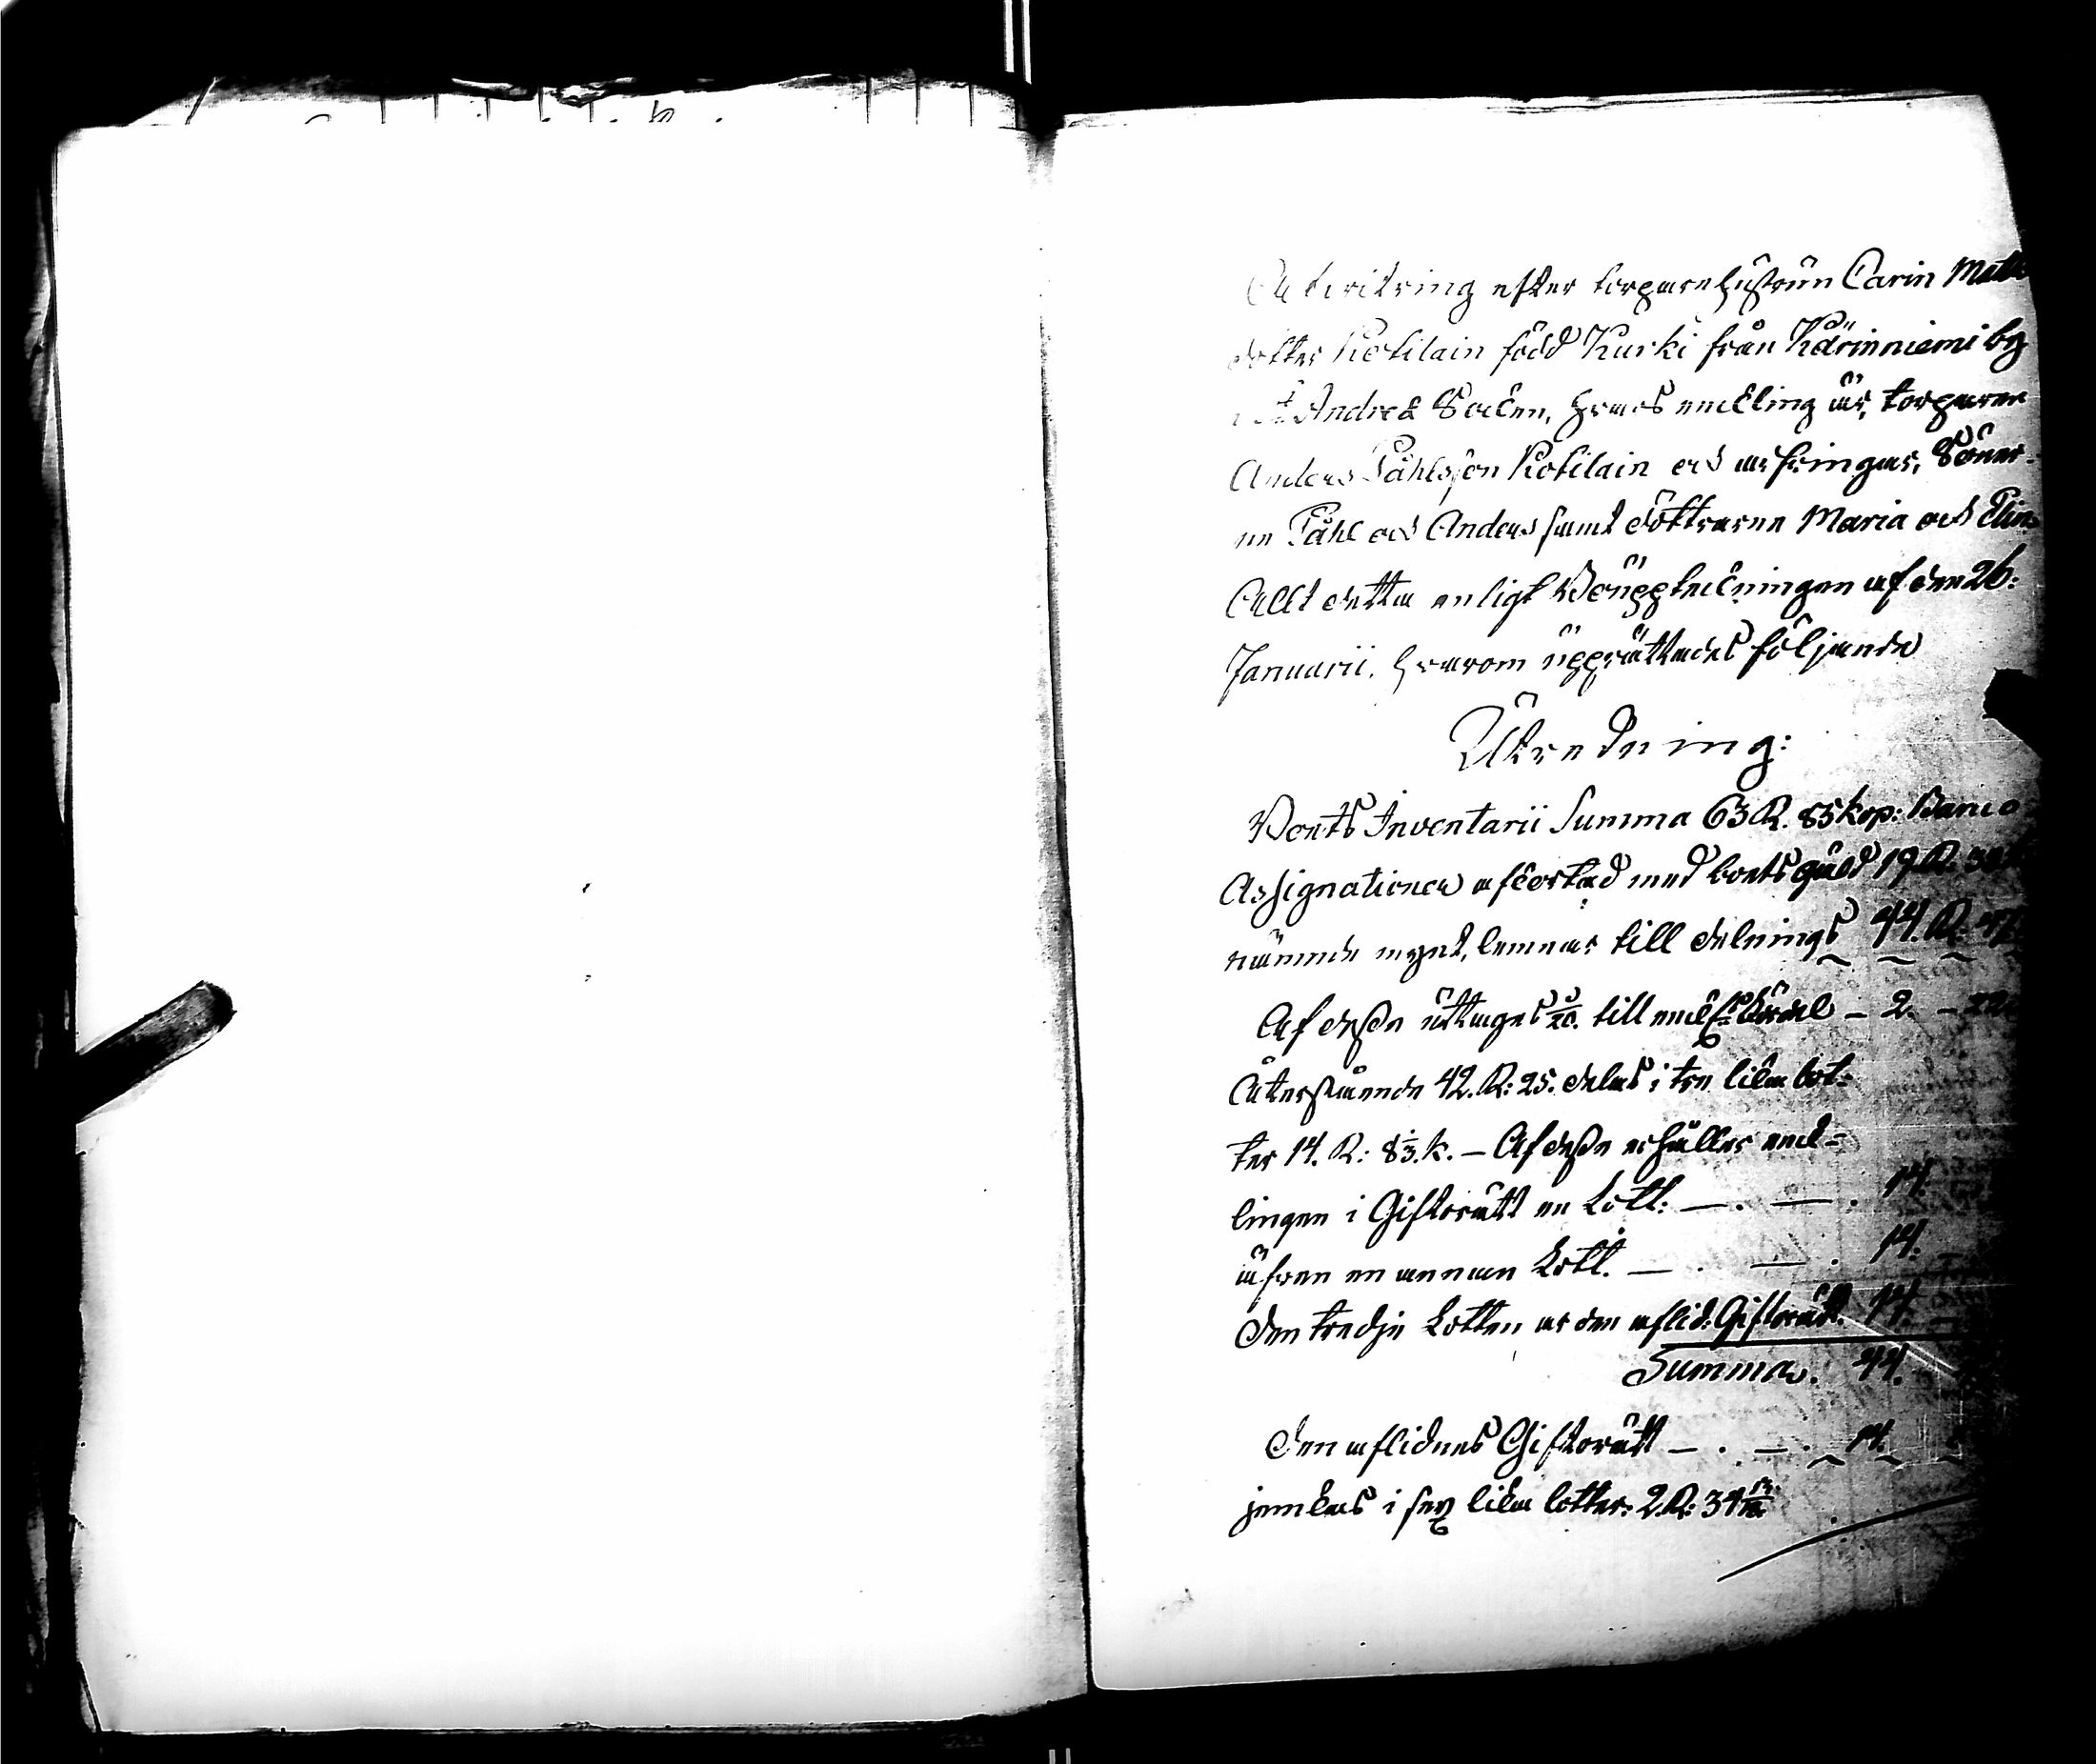 Arfskifring efter torpare hustrun Carin Matts
dotter Kotilain född Kurki från Kärinniemi by
St Andreæ Socken, hvars enckling är, torparen
Anders Påhlsson Kotilain och arfvingar, Söner-
ne Påhl och Anders samt döttrarne Maria och Elin
Allt detta enligt Boüppteckningen af den 26:
Januarii. hvarom üpprättades följande
Ütredning:
Boets Inventarii Summa 63 R. 85 kop: Banco
Assignationer afkortad med boets gäld 19 R: 38
nämnde mynt, lemnas till delning 44. R: 47
Af desse üttages 1/20. till enckl. fördel – 2. – 22
Återstående 42. R: 25. delas i tre lika lot-
ter 14. R: 8 1/3. k. – Af desse erhåller enck-
lingen i Giftorätt en Lott: – . – . 14.
äfven en annan Lott. – . – . 14:
den tredje Lotten är den aflid: Giftorätt. 14.
Summa. 44.
den aflidnes Giftorätt – . – . 14.
jemkas i sex lika lotter: 2. R: 34 13/18